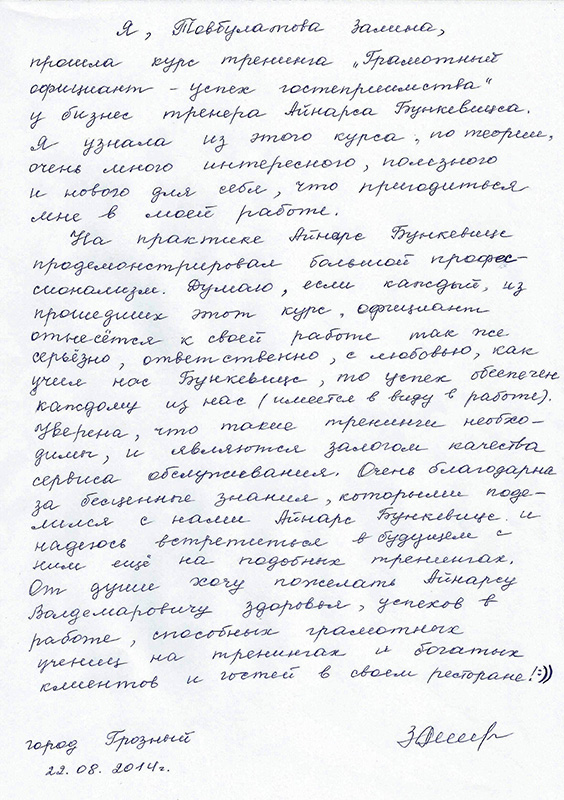 Я, Товбулатова Залина,
прошла курс тренинга „Грамотный
официант – успех гостеприимства“
у бизнес тренера Айнарса Бункевицса.
Я узнала из этого курса, по теории,
очень много интересного, полезного
и нового для себя, что пригодиться
мне в моей работе.
На практике Айнарс Бункевицс
продемонстрировал большой профес-
сионализм. Думаю, если каждый, из
прошедших этот курс, официант
отнесётся к своей работе так же
серьёзно, ответственно, с любовью, как
учил нас Бункевицс, то успех обеспечен
каждому из нас (имеется в виду в работе).
Уверена, что такие тренинги необхо-
димы, и являются залогом качества
сервиса обслуживания. Очень благодарна
за бесценные знания, которыми поде-
лился с нами Айнарс Бункевицс и
надеюсь встретиться в будущем с
ним ещё на подобных тренингах.
От души хочу пожелать Айнарсу
Валдемаровичу здоровья, успехов в
работе, способных грамотных
учениц на тренингах и богатых
клиентов и гостей в своем ресторане!:))
город Грозный
22.08.2014г.